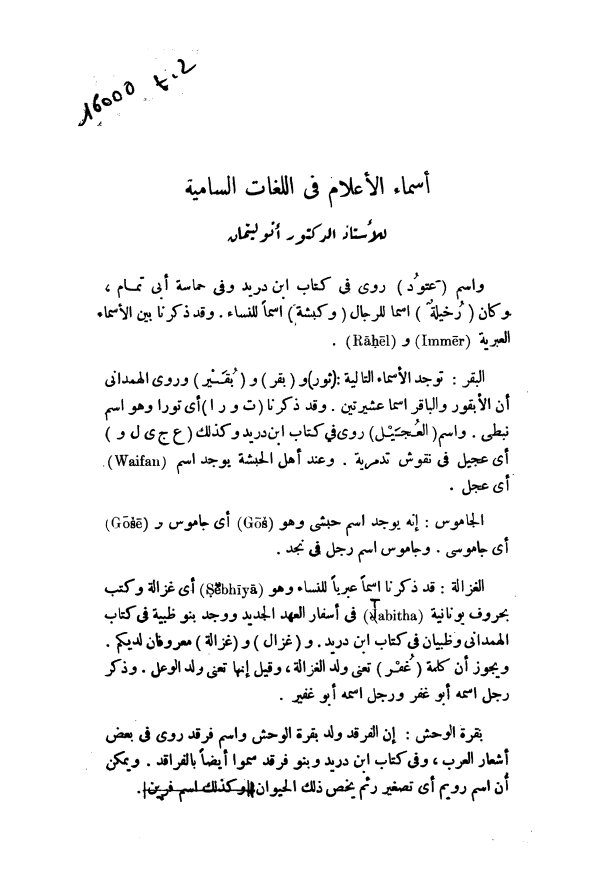 16000 t.2
أسماء الأعلام فى اللغات السامية
للأستاذ الدكتور أنو ليتمان
واسم (عتود) روى فى كتاب ابن دريد وفى حماسة أبى تمام ،
وكان (رُخيلة) اسما للرجال (وكبشة) اسماً للنساء . وقد ذكرنا بين الأسماء
العبرية (Immēr) و (Rāḥēl) .
البقر : توجد الأسماء التالية :(ثور) و (بقر) و (بُقَيْر) وروى الهمدانى
أن الأبقور والباقر اسما عشيرتين . وقد ذكرنا (ت و ر ا) أى تورا وهو اسم
نبطى . واسم (العُجَيْل) روى فى كتاب ابن دريد وكذلك (ع ج ى ل و)
أى عجيل فى نقوش تدمرية . وعند أهل الحبشة يوجد اسم (Waifan)
أى عجل .
الجاموس : إنه يوجد اسم حبشى وهو (Gōš) أى جاموس و (Gōšē)
أى جاموسى . وجاموس اسم رجل فى نجد .
الغزالة : قد ذكرنا اسماً عبرياً للنساء وهو (Ṣĕbhīyā) أى غزالة وكتب
بحروف يونانية (Tabitha) فى أسفار العهد الجديد ووجد بنو ظبية فى كتاب
الهمدانى وظبيان فى كتاب ابن دريد . و (غزال) و (غزالة) معروفان لديكم .
ويجوز أن كلمة (غُفْر) تعنى ولد الغزالة ، وقيل إنها تعنى ولد الوعل . وذكر
رجل اسمه أبو غفر ورجل اسمه أبو غفير .
بقرة الوحش : إن الفرقد ولد بقرة الوحش واسم فرقد روى فى بعض
أشعار العرب ، وفى كتاب ابن دريد وبنو فرقد سموا أيضاً بالفراقد . ويمكن
أن اسم رويم أى تصغير رئم يخص ذلك الحيوان وكذلك اسم فرين .